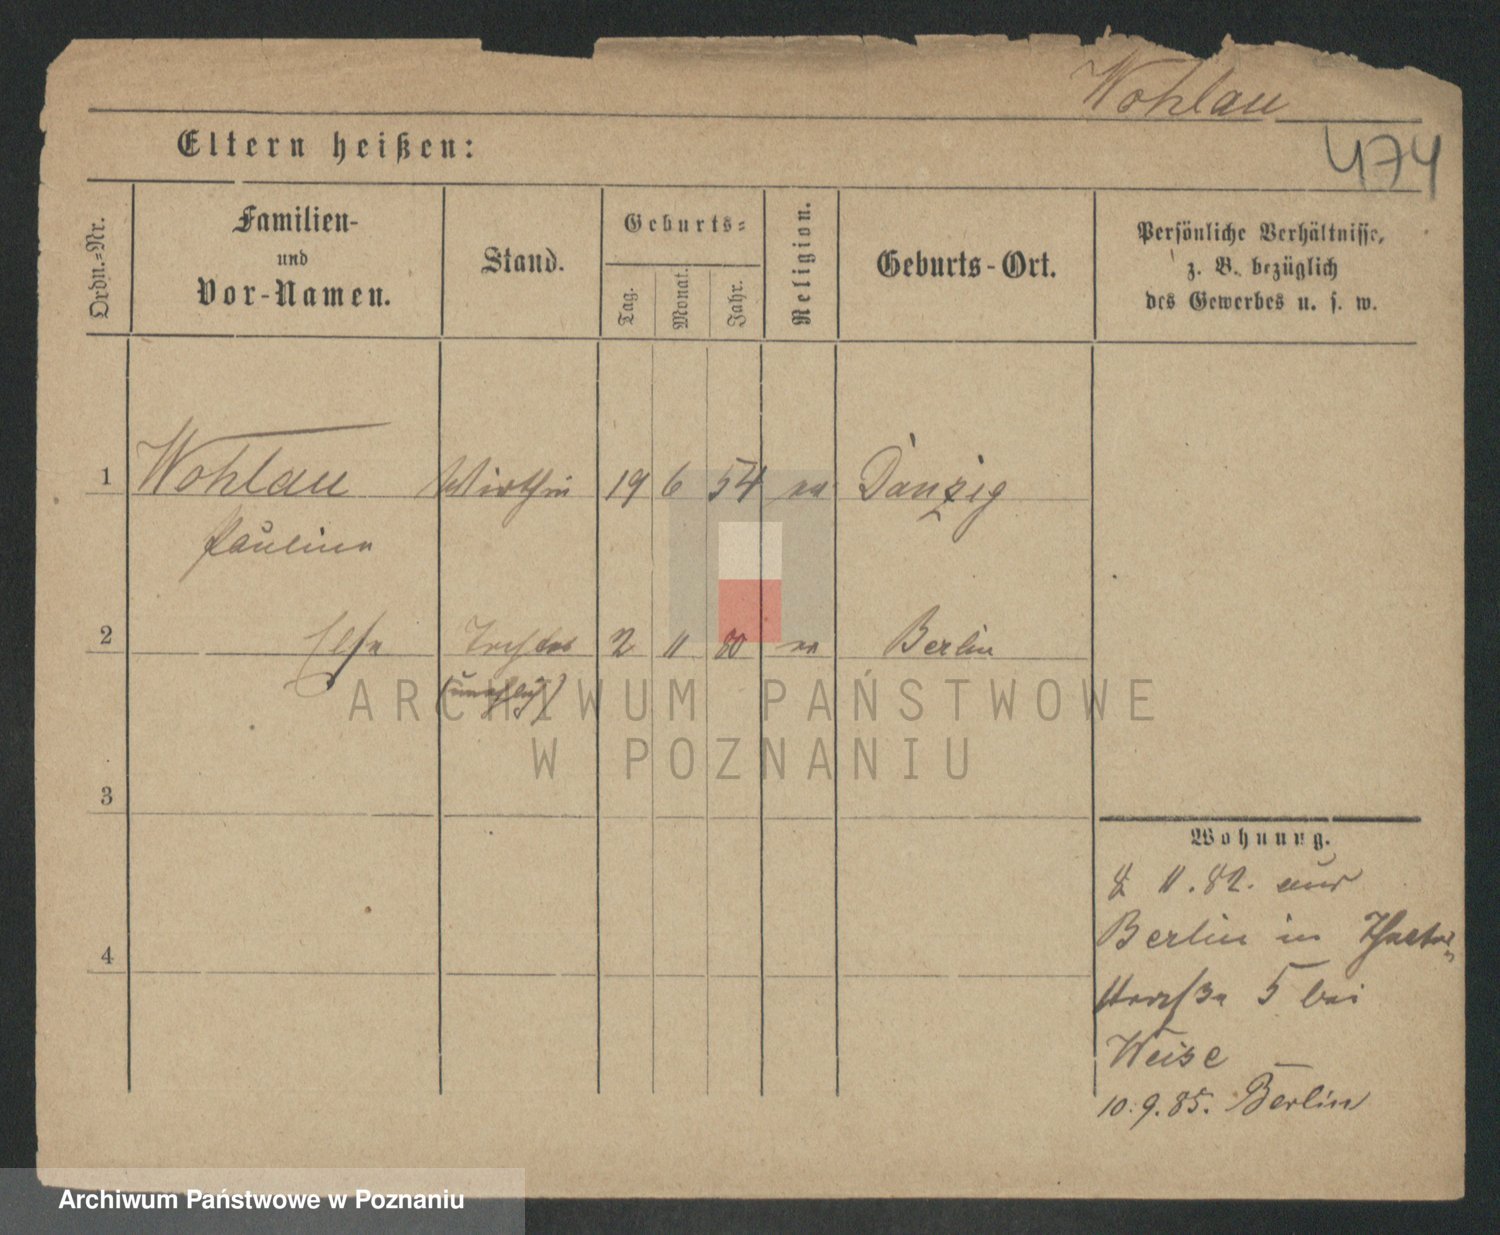 Wohlau
474
Eltern heißen:
Ordn.=Nr.
Familien-
und
Vor-Namen.
Stand.
Geburts=
Tag.
Monat.
Jahr.
Religion.
Geburts-Ort.
Persönliche Verhältnisse,
z. B. bezüglich
des Gewerbes u. s. w.
1 Wohlau Wirthin 19 6 54 ev Danzig
Pauline
2 Else Tochter 2 11 80 ev Berlin
(unehlich)
3
4
Wohnung.
8 11. 82. aus
Berlin in
straße 5 bei
Weise
10. 9. 85. Berlin
ARCHIWUM PAŃSTWOWE
W POZNANIU
Archiwum Państwowe w Poznaniu